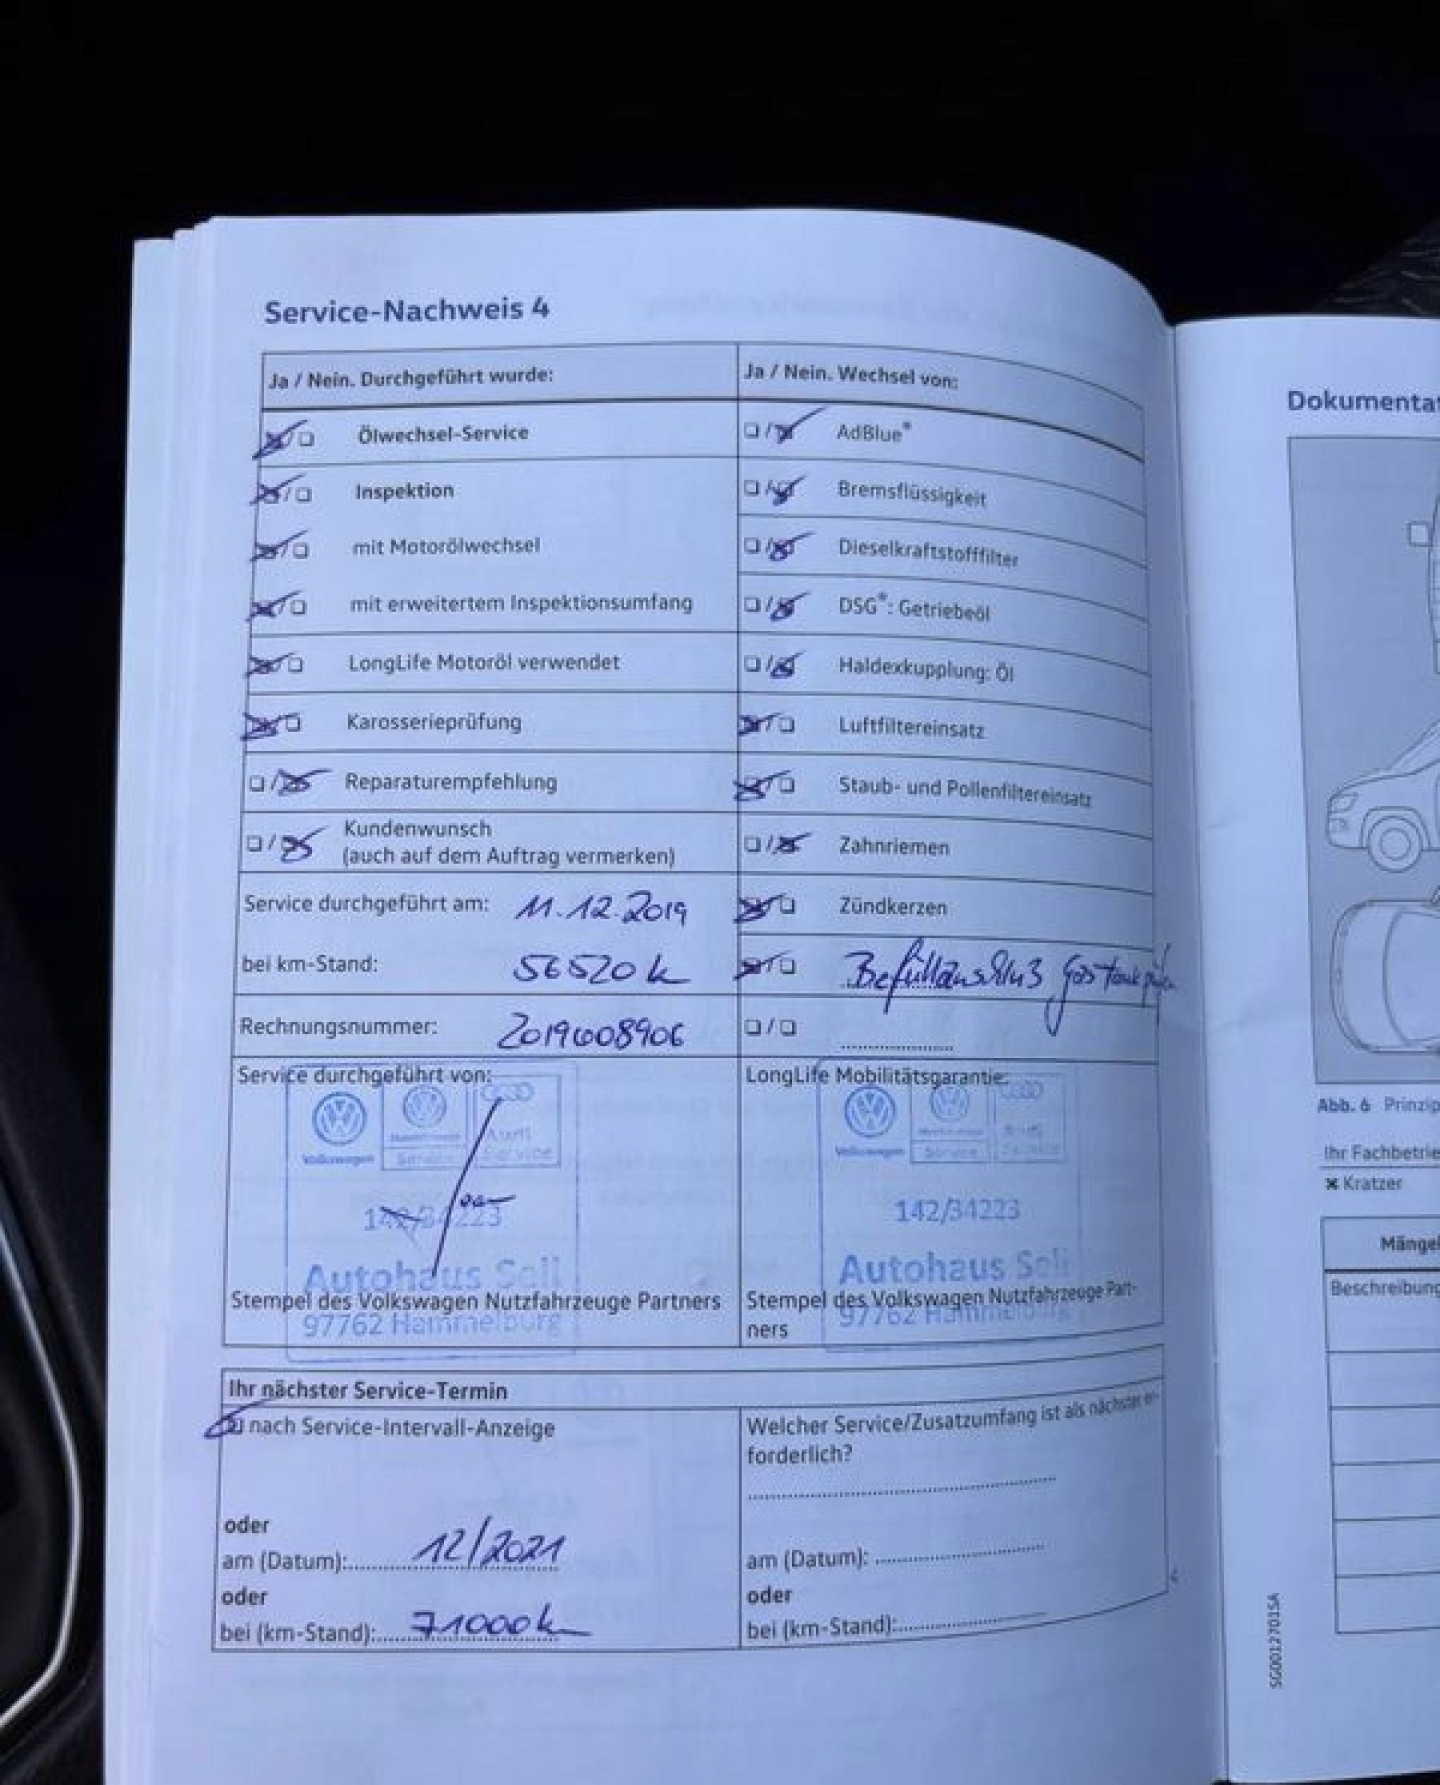 Service-Nachweis 4
Ja / Nein. Durchgeführt wurde:
Ölwechsel-Service
Inspektion
mit Motorölwechsel
mit erweitertem Inspektionsumfang
LongLife Motoröl verwendet
Karosserieprüfung
Reparaturempfehlung
Kundenwunsch
(auch auf dem Auftrag vermerken)
Service durchgeführt am: 11.12.2019
bei km-Stand: 56520 k
Rechnungsnummer: 2019608906
Service durchgeführt von:
Volkswagen
Service
Audi
Service
142/34223
Autohaus Sell
Stempel des Volkswagen Nutzfahrzeuge Partners
97762 Hammelburg
Ja / Nein. Wechsel von:
AdBlue®
Bremsflüssigkeit
Dieselkraftstofffilter
DSG®: Getriebeöl
Haldexkupplung: Öl
Luftfiltereinsatz
Staub- und Pollenfiltereinsatz
Zahnriemen
Zündkerzen
Befüllanschluß Gastank
LongLife Mobilitätsgarantie:
Volkswagen
Service
Audi
Service
142/34223
Autohaus Sell
Stempel des Volkswagen Nutzfahrzeuge Part-
ners
97762 Hammelburg
Ihr nächster Service-Termin
nach Service-Intervall-Anzeige
oder
am (Datum): 12/2021
oder
bei (km-Stand): 71000 k
Welcher Service/Zusatzumfang ist als nächster er-
forderlich?
am (Datum):
oder
bei (km-Stand):
Dokumentat
Abb. 6 Prinzip
Ihr Fachbetrie
Kratzer
Mängel
Beschreibung
SG0012701SA